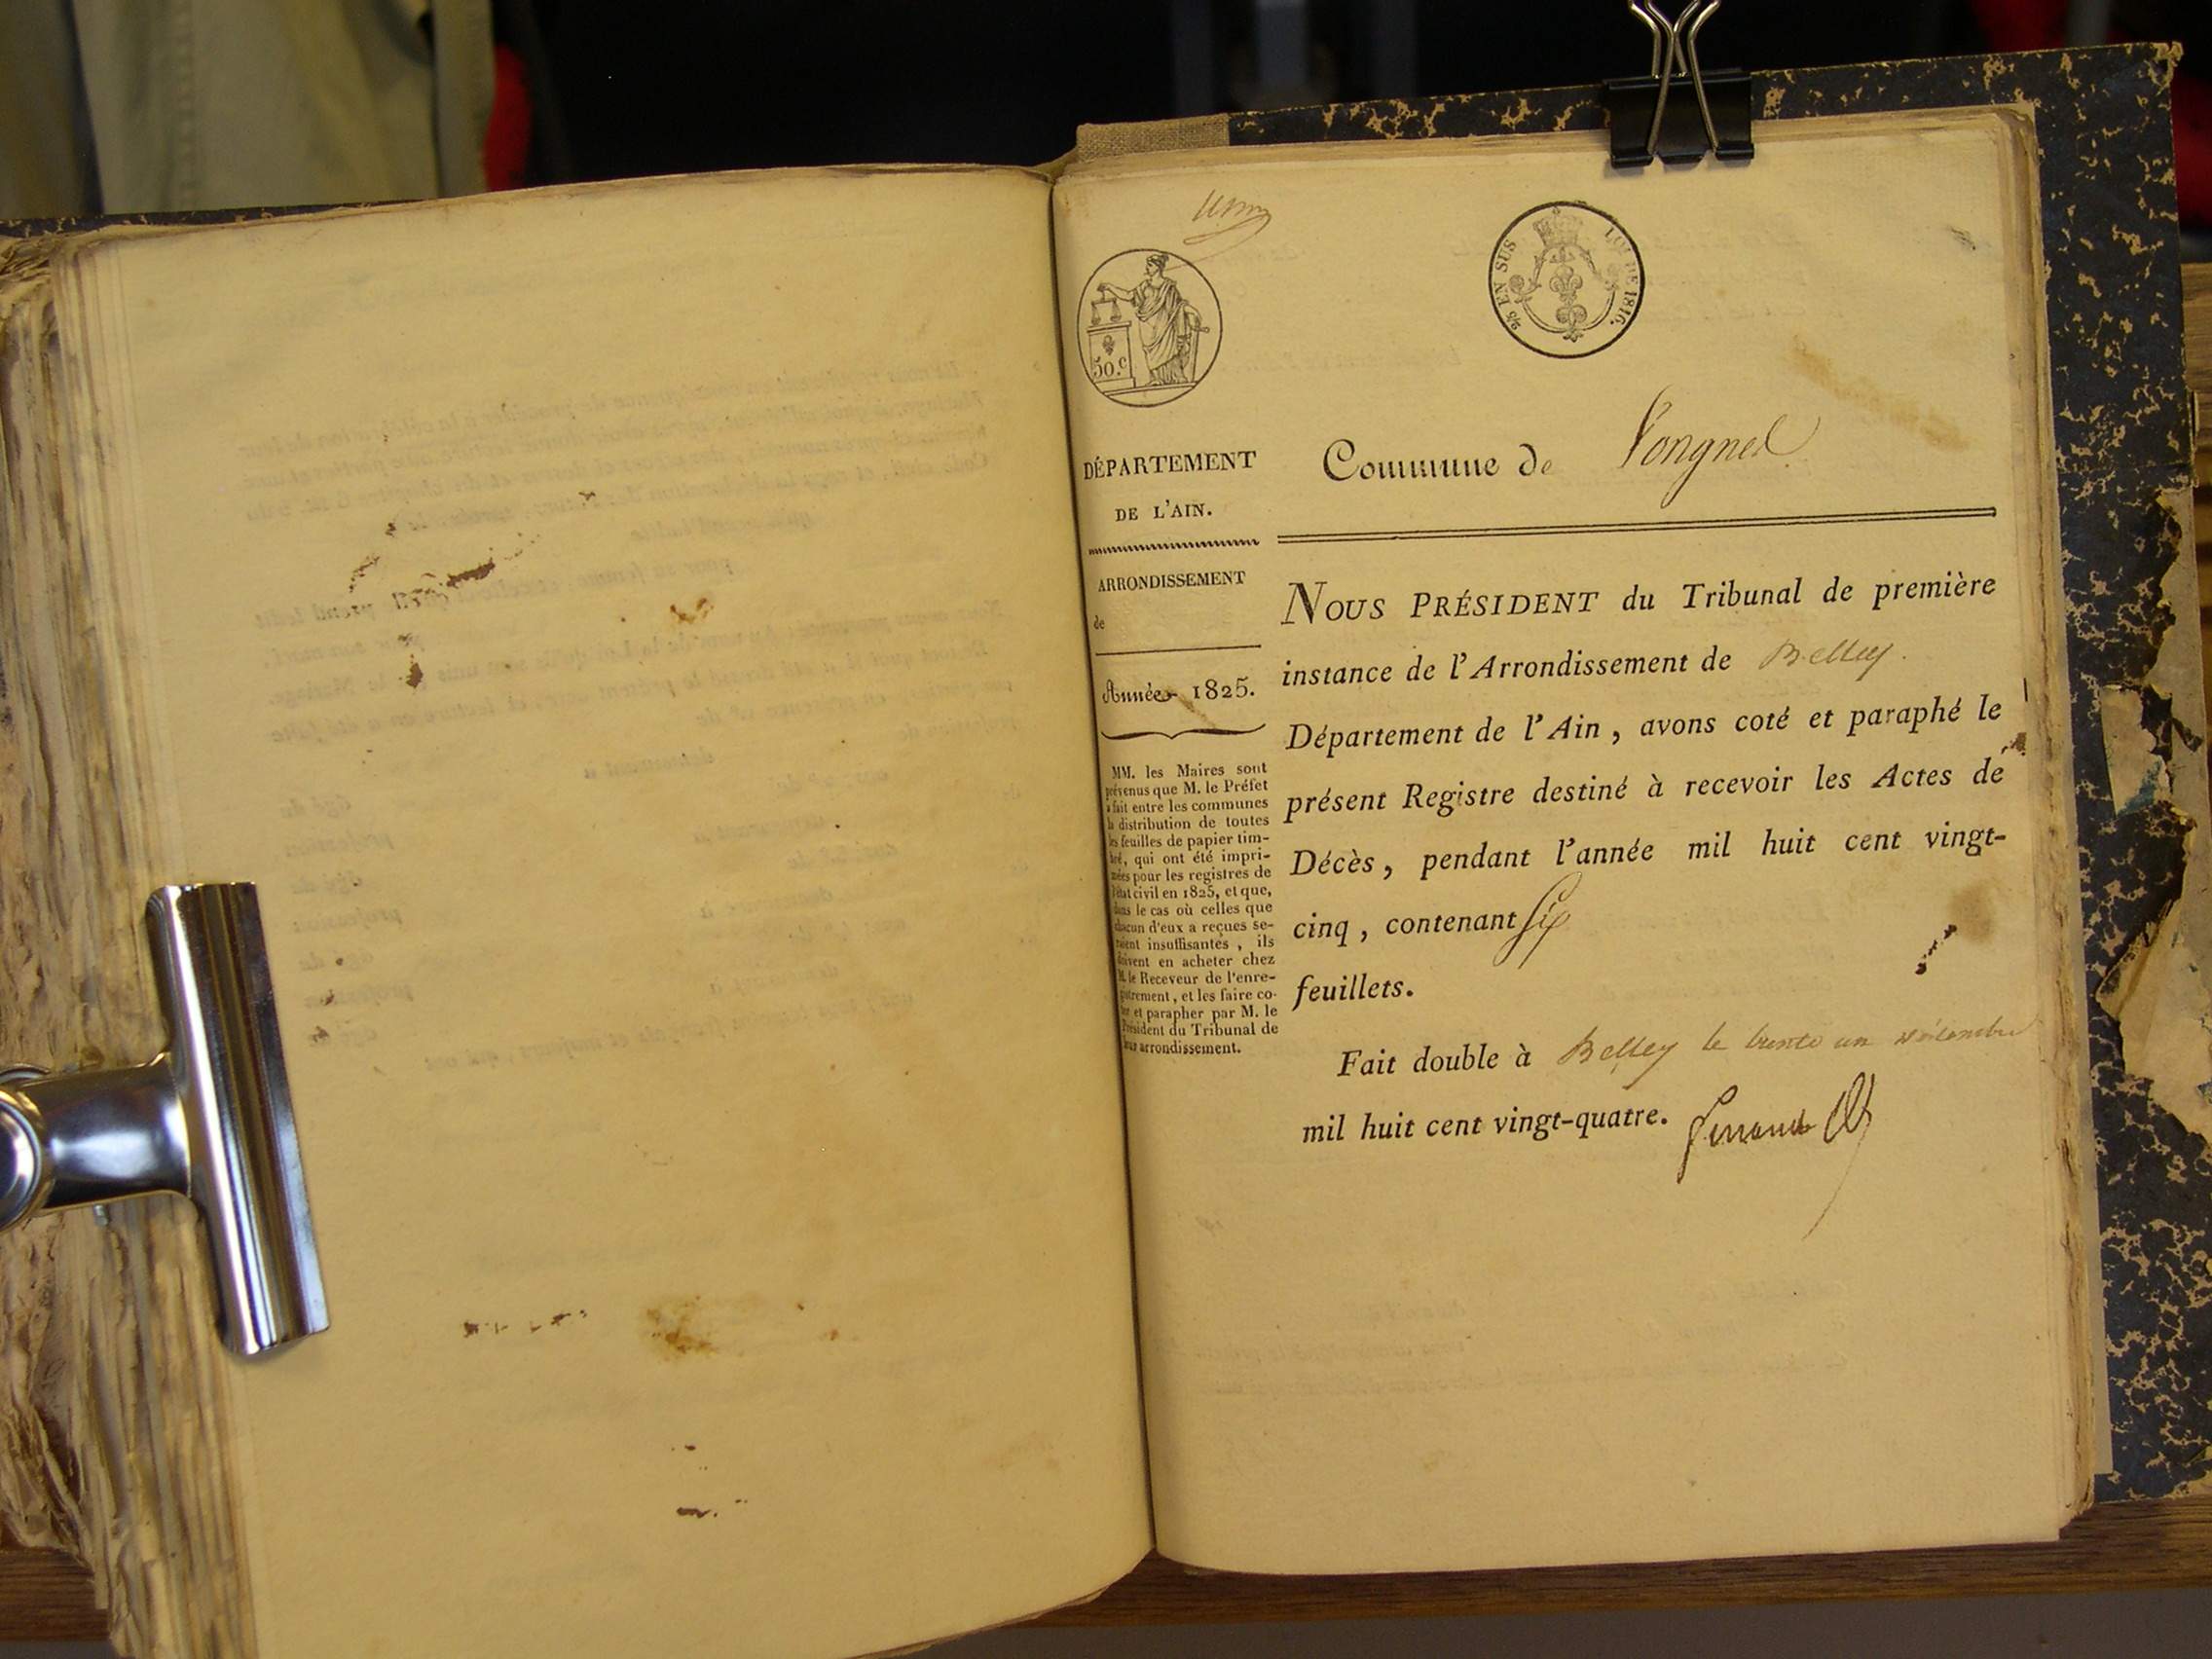 50.c
2/10 EN SUS LOI DE 1816.
DÉPARTEMENT
DE L'AIN.
ARRONDISSEMENT
de
Année 1825.
MM. les Maires sont
prévenus que M. le Préfet
a fait entre les communes
la distribution de toutes
les feuilles de papier tim-
bré, qui ont été impri-
mées pour les registres de
l'état civil en 1825, et que,
dans le cas où celles que
chacun d'eux a reçues se-
raient insuffisantes, ils
doivent en acheter chez
M. le Receveur de l'enre-
gistrement, et les faire co-
ter et parapher par M. le
Président du Tribunal de
leur arrondissement.
Commune de
NOUS PRÉSIDENT du Tribunal de première
instance de l'Arrondissement de Belley.
Département de l'Ain, avons coté et paraphé le
présent Registre destiné à recevoir les Actes de
Décès, pendant l'année mil huit cent vingt-
cinq, contenant Six
feuillets.
Fait double à Belley le trente un décembre
mil huit cent vingt-quatre.